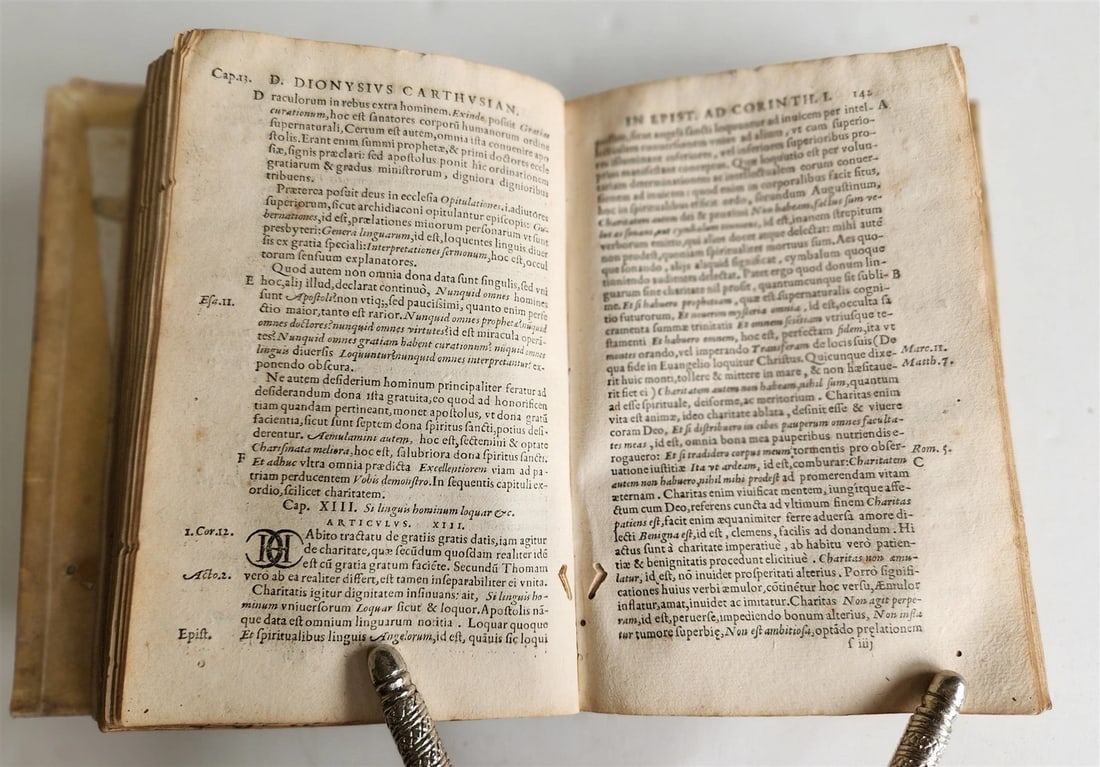 Cap.13. D. DIONYSIVS CARTHVSIAN.
D raculorum in rebus extra hominem. Exinde posuit Gratias
curationum, hoc est sanatores corporũ humanorum ordine
supernaturali, Certum est autem, omnia ista conuenire apo
stolis. Erant enim summi prophetæ, & primi doctores eccle
siæ, signis præclari: sed apostolus ponit hic ordinationem
gratiarum & gradus ministrorum, digniora dignioribus
tribuens.
Præterea posuit deus in ecclesia Opitulationes. i. adiutores
superiorum, sicut archidiaconi opitulantur episcopis: Gu-
bernationes, id est, prælationes minorum personarum vt sunt
presbyteri: Genera linguarum, id est, loquentes linguis diuer
sis ex gratia speciali: Interpretationes sermonum, hoc est, occul
torum sensuum explanatores.
Quod autem non omnia dona data sunt singulis, sed vni
E hoc, alij illud, declarat continuò, Nunquid omnes homines
Esa.11. sunt Apostoli? non vtiq;, sed paucissimi, quanto enim perfe
ctio maior, tanto est rarior. Nunquid omnes prophetæ? nunquid
omnes doctores? nunquid omnes virtutes? id est miracula operã-
tes? Nunquid omnes gratiam habent curationum? nũquid omnes
linguis diuersis Loquuntur? nunquid omnes interpretantur? ex-
ponendo obscura.
Ne autem desiderium hominum principaliter feratur ad
desiderandum dona ista gratuita, eo quod ad honorificen
tiam quandam pertineant, monet apostolus, vt dona gratũ
facientia, sicut sunt septem dona spiritus sancti, potius desi-
derentur. Aemulamini autem, hoc est, sectemini & optate
Charismata meliora, hoc est, salubriora dona spiritus sancti.
F Et adhuc vltra omnia prædicta Excellentiorem viam ad pa-
triam perducentem Vobis demonstro. In sequentis capituli ex-
ordio, scilicet charitatem.
Cap. XIII. Si linguis hominum loquar &c.
ARTICVLVS. XIII.
1. Cor.12. HAbito tractatu de gratiis gratis datis, iam agitur
de charitate, quæ secũdum quosdam realiter idẽ
est cũ gratia gratum faciẽte. Secundũ Thomam
Acto.2. vero ab ea realiter differt, est tamen inseparabiliter ei vnita.
Charitatis igitur dignitatem insinuans: ait, Si linguis ho-
minum vniuersorum Loquar sicut & loquor. Apostolis nã-
que data est omnium linguarum notitia. Loquar quoque
Epist. Et spiritualibus linguis Angelorum, id est, quãuis sic loqui
IN EPIST. AD CORINTH. I. 142
sancti loquuntur ad inuicem per intel- A
vnius ad alium, vt cum superio-
inferiorem, vel inferiores superioribus pro-
conceptum. Quæ loquutio est per volun-
determinationem ac intellectualem eorum conuer-
sionem ad inuicem: quod enim in corporalibus facit situs,
hoc in spiritualibus efficit ordo, secundum Augustinum,
Charitatem autem dei & proximi Non habeam, factus sum ve-
lut æs sonans, aut cymbalum tinniens, id est, inanem strepitum
verborum emitto, qui alios docet atque delectat: mihi autẽ
non prodest, quoniam spiritualiter mortuus sum. Aes quo-
que sonando, alijs aliquid significat, cymbalum quoque
tinniendo audientes delectat. Patet ergo quod donum lin-
guarum sine charitate nil prosit, quantumcunque sit subli- B
me. Et si habuero prophetiam, quæ est supernaturalis cogni-
tio futurorum, Et nouerim mysteria omnia, id est, occulta sa
cramenta summæ trinitatis Et omnem scientiam vtriusque te-
stamenti Et habuero omnem, hoc est, perfectam fidem, ita vt
montes orando, vel imperando Transferam de locis suis (De
qua fide in Euangelio loquitur Christus. Quicunque dixe- Marc.11.
rit huic monti, tollere & mittere in mare, & non hæsitaue- Matth.7.
rit fiet ei) Charitatem autem non habeam, nihil sum, quantum
ad esse spirituale, deiforme, ac meritorium. Charitas enim
vita est animæ, ideo charitate ablata, desinit esse & viuere
coram Deo, Et si distribuero in cibos pauperum omnes faculta-
tes meas, id est, omnia bona mea pauperibus nutriendis e-
rogauero: Et si tradidero corpus meum tormentis pro obser- Rom. 5.
uatione iustitiæ Ita vt ardeam, id est, comburar: Charitatem C
autem non habuero, nihil mihi prodest ad promerendam vitam
æternam. Charitas enim viuificat mentem, iungitque affe-
ctum cum Deo, referens cuncta ad vltimum finem Charitas
patiens est, facit enim æquanimiter ferre aduersa amore di-
lecti Benigna est, id est, clemens, facilis ad donandum. Hi
actus sunt à charitate imperatiuè, ab habitu verò patien-
tiæ & benignitatis procedunt elicitiuè. Charitas non æmu-
latur, id est, nõ inuidet prosperitati alterius. Porrò signifi-
cationes huius verbi æmulor, cõtinẽtur hoc versu, Æmulor
inflatur, amat, inuidet ac imitatur. Charitas Non agit perpe-
ram, id est, peruerse, impediendo bonum alterius, Non infla
tur tumore superbię, Non est ambitiosa, optãdo pręlationem
f iiij